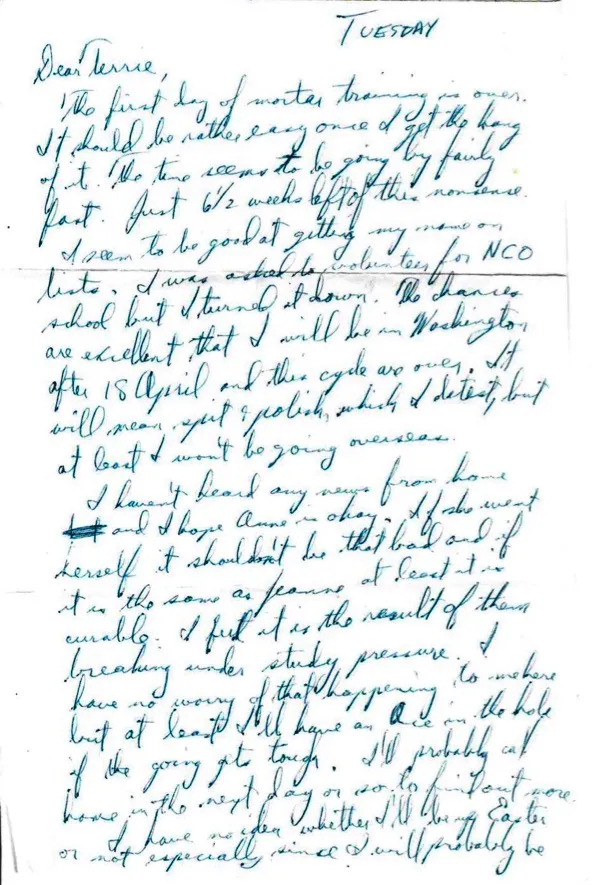 TUESDAY
Dear Terrie,
The first day of mortar training is over.
It should be rather easy once I get the hang
of it. The time seems to be going by fairly
fast. Just 6½ weeks left of this nonsense.
I seem to be good at getting my name on
lists. I was asked to volunteer for NCO
school but I turned it down. The chances
are excellent that I will be in Washington
after 18 April and this cycle are over. It
will mean spit & polish, which I detest, but
at least I won't be going overseas.
I haven't heard any news from home
and I hope Anne is okay. If she went
herself it shouldn't be that bad and if
it is the same as Jeanne at least it is
curable. I feel it is the result of them
breaking under study pressure. I
have no worry of that happening to me here
but at least I'll have an Ace in the hole
if the going gets tough. I'll probably call
home in the next day or so to find out more.
I have no idea whether I'll be up Easter
or not especially since I will probably be